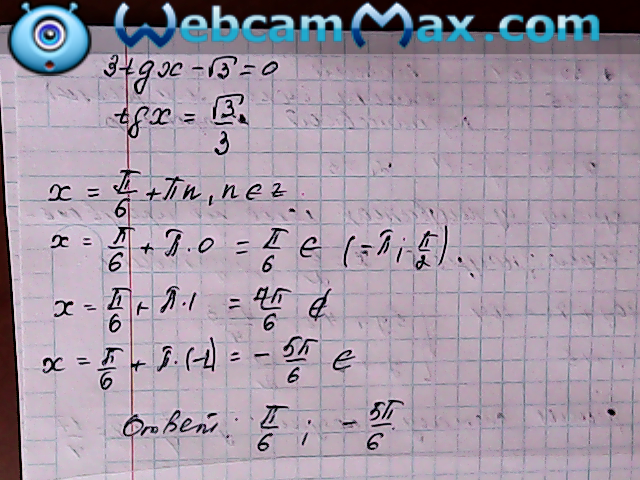 WebcamMax.com
3tgx - √3 = 0
tgx = √3/3
x = π/6 + πn, n ∈ z
x = π/6 + π·0 = π/6 ∈ (-π; π/2).
x = π/6 + π·1 = 7π/6 ∉
x = π/6 + π·(-1) = - 5π/6 ∈
Ответ: π/6 ; - 5π/6.